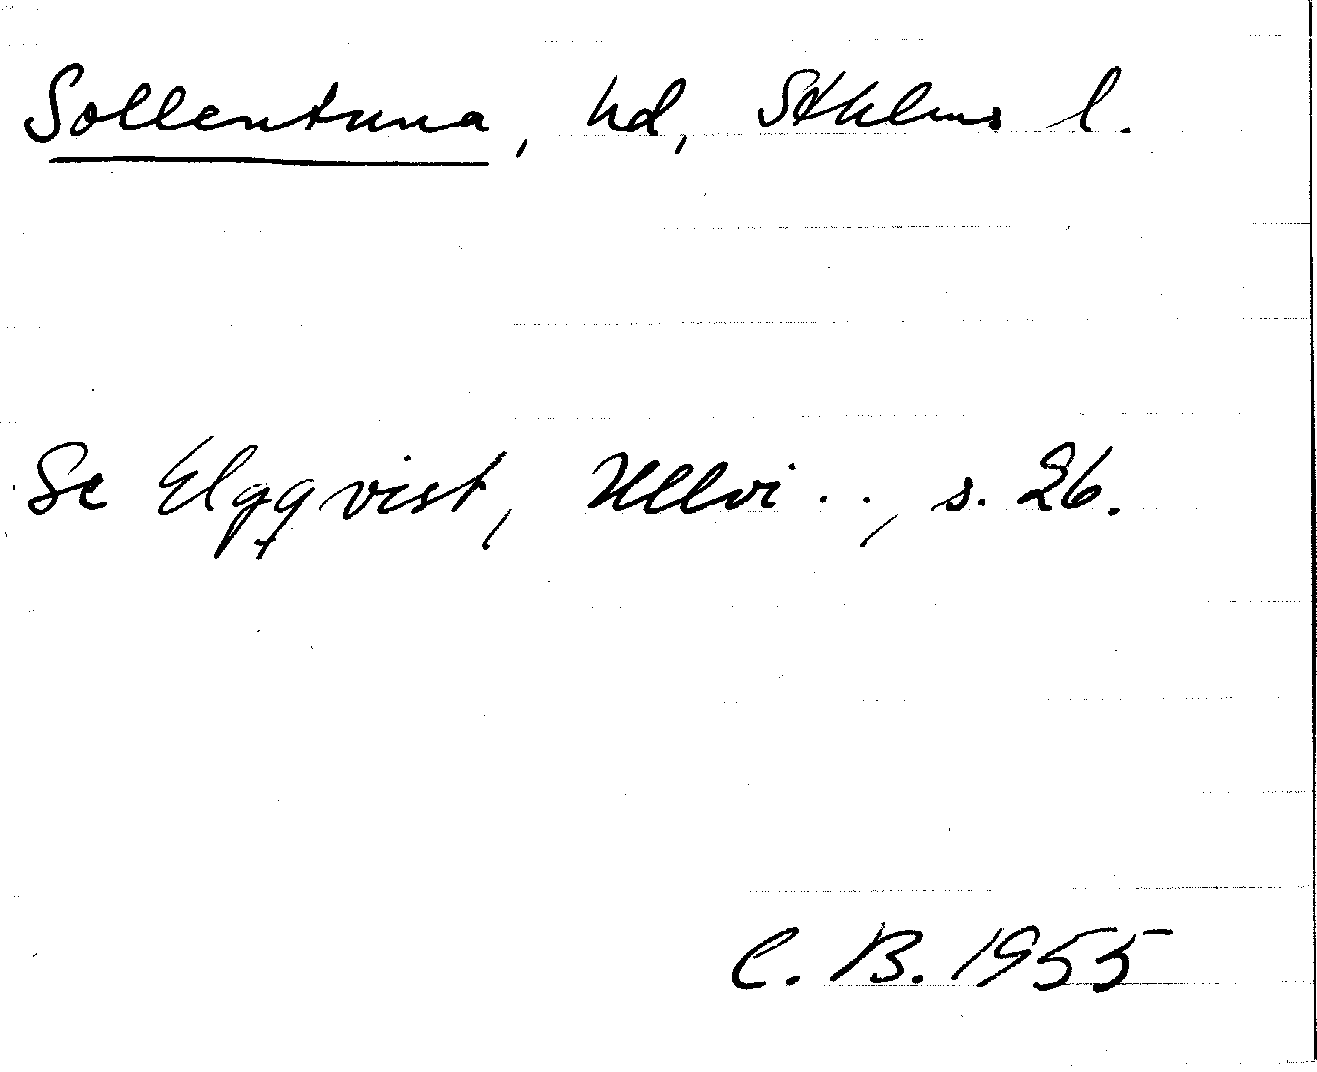 Sollentuna, hd, Sthlms l.
Se Elgqvist, Ullvi . . , s. 26.
C. B. 1955